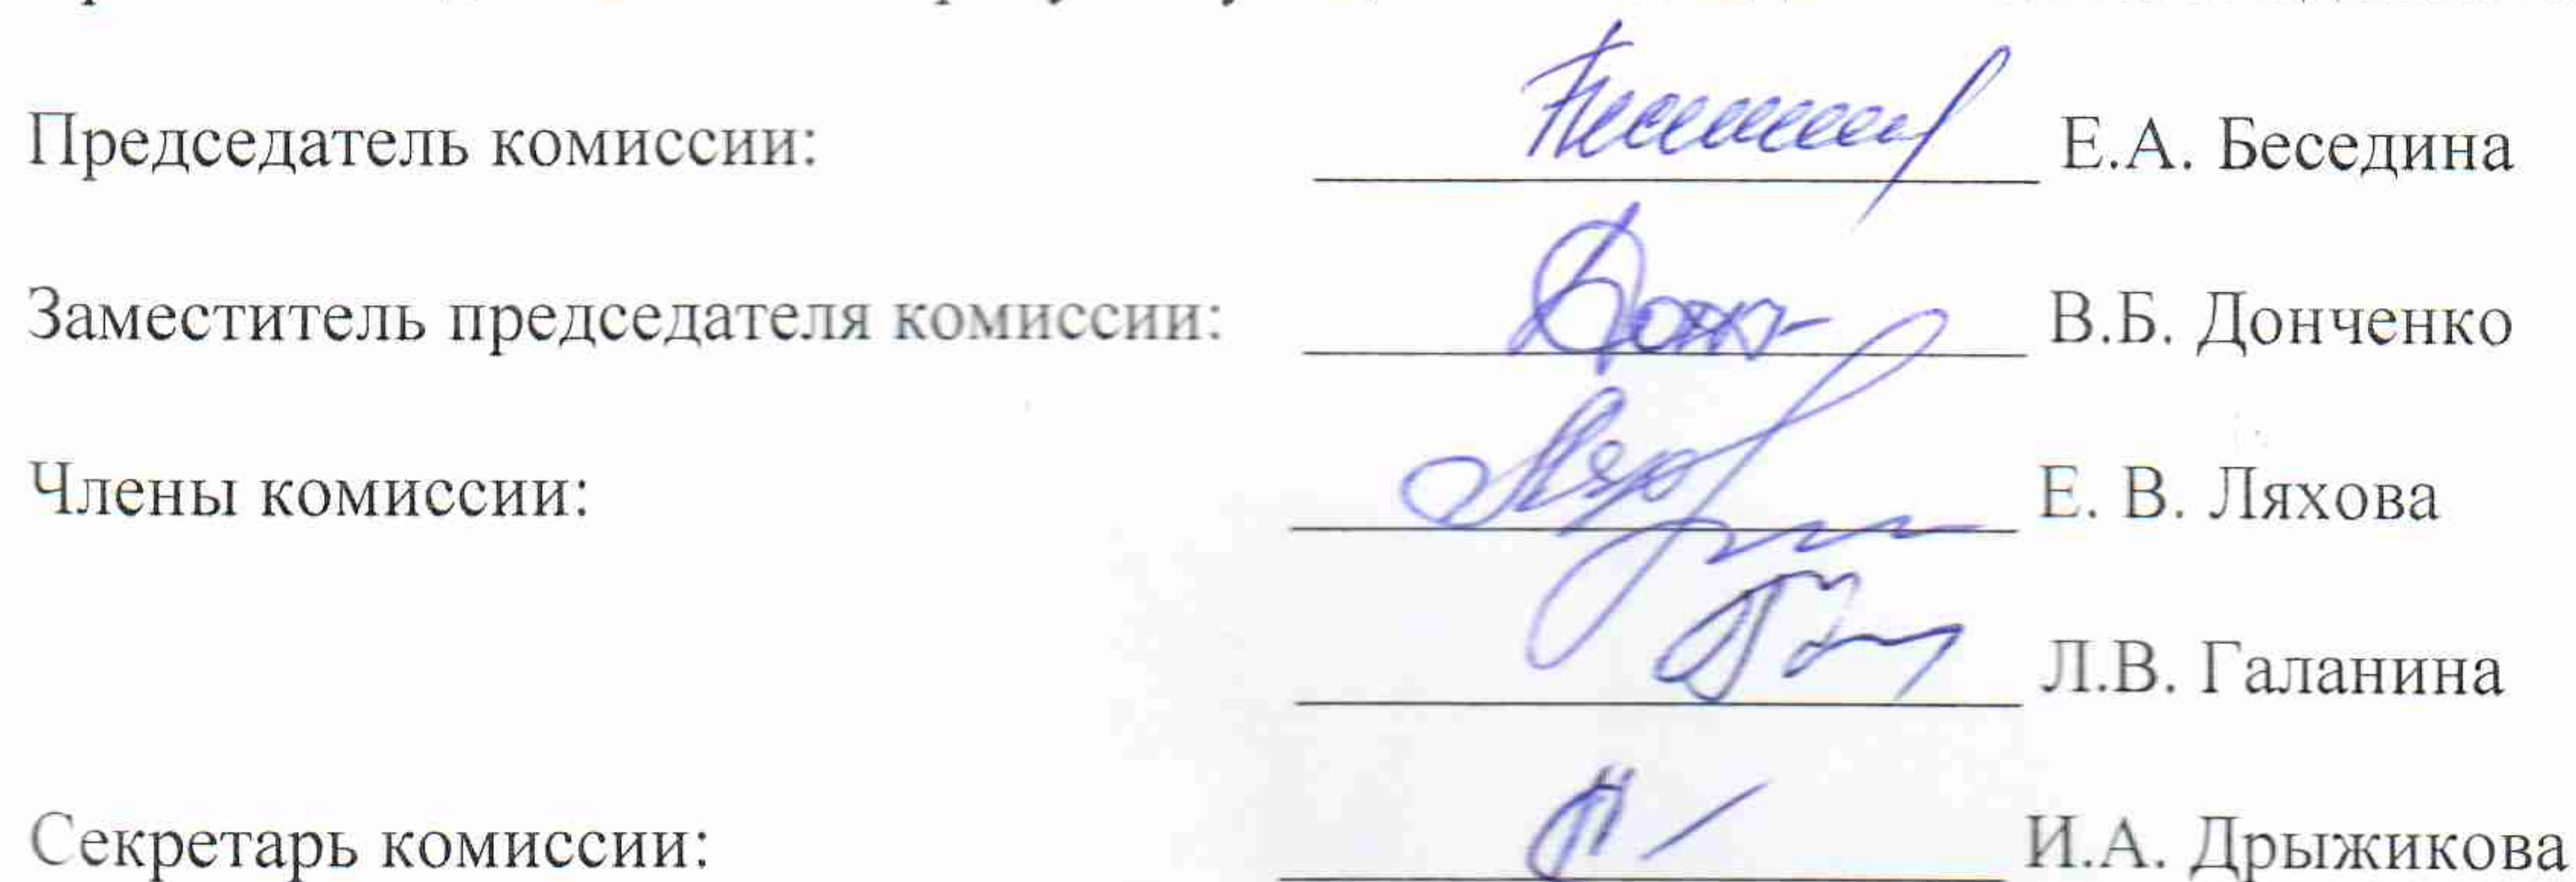 Председатель комиссии: Е.А. Беседина
Заместитель председателя комиссии: В.Б. Донченко
Члены комиссии: Е. В. Ляхова
Л.В. Галанина
Секретарь комиссии: И.А. Дрыжикова